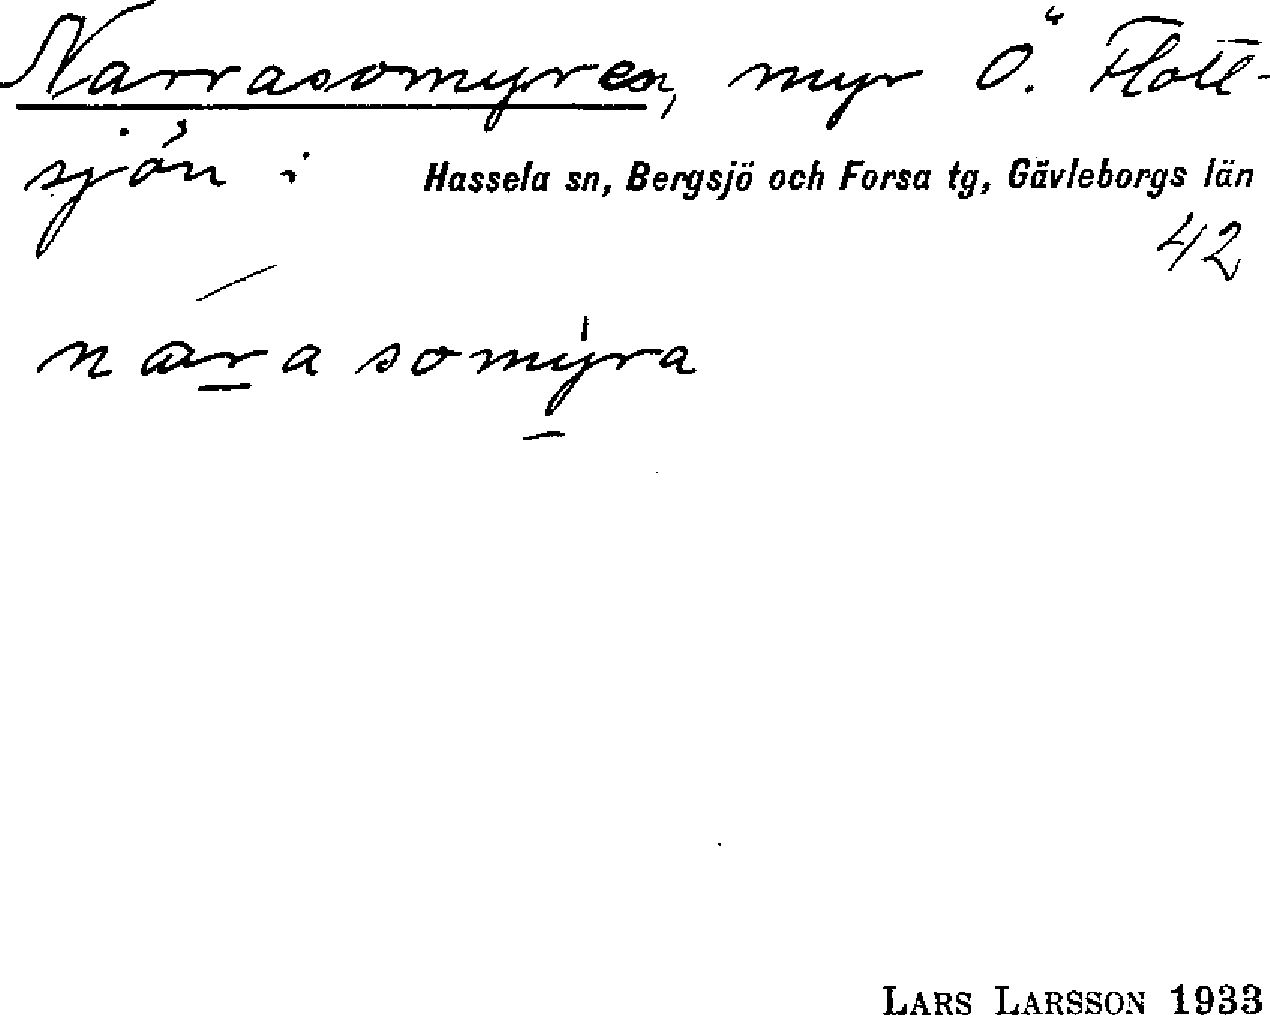 Narrasomyren, myr Ö. Flott-
sjön i Hassela sn, Bergsjö och Forsa tg, Gävleborgs län
42
narasomyra
LARS LARSSON 1933